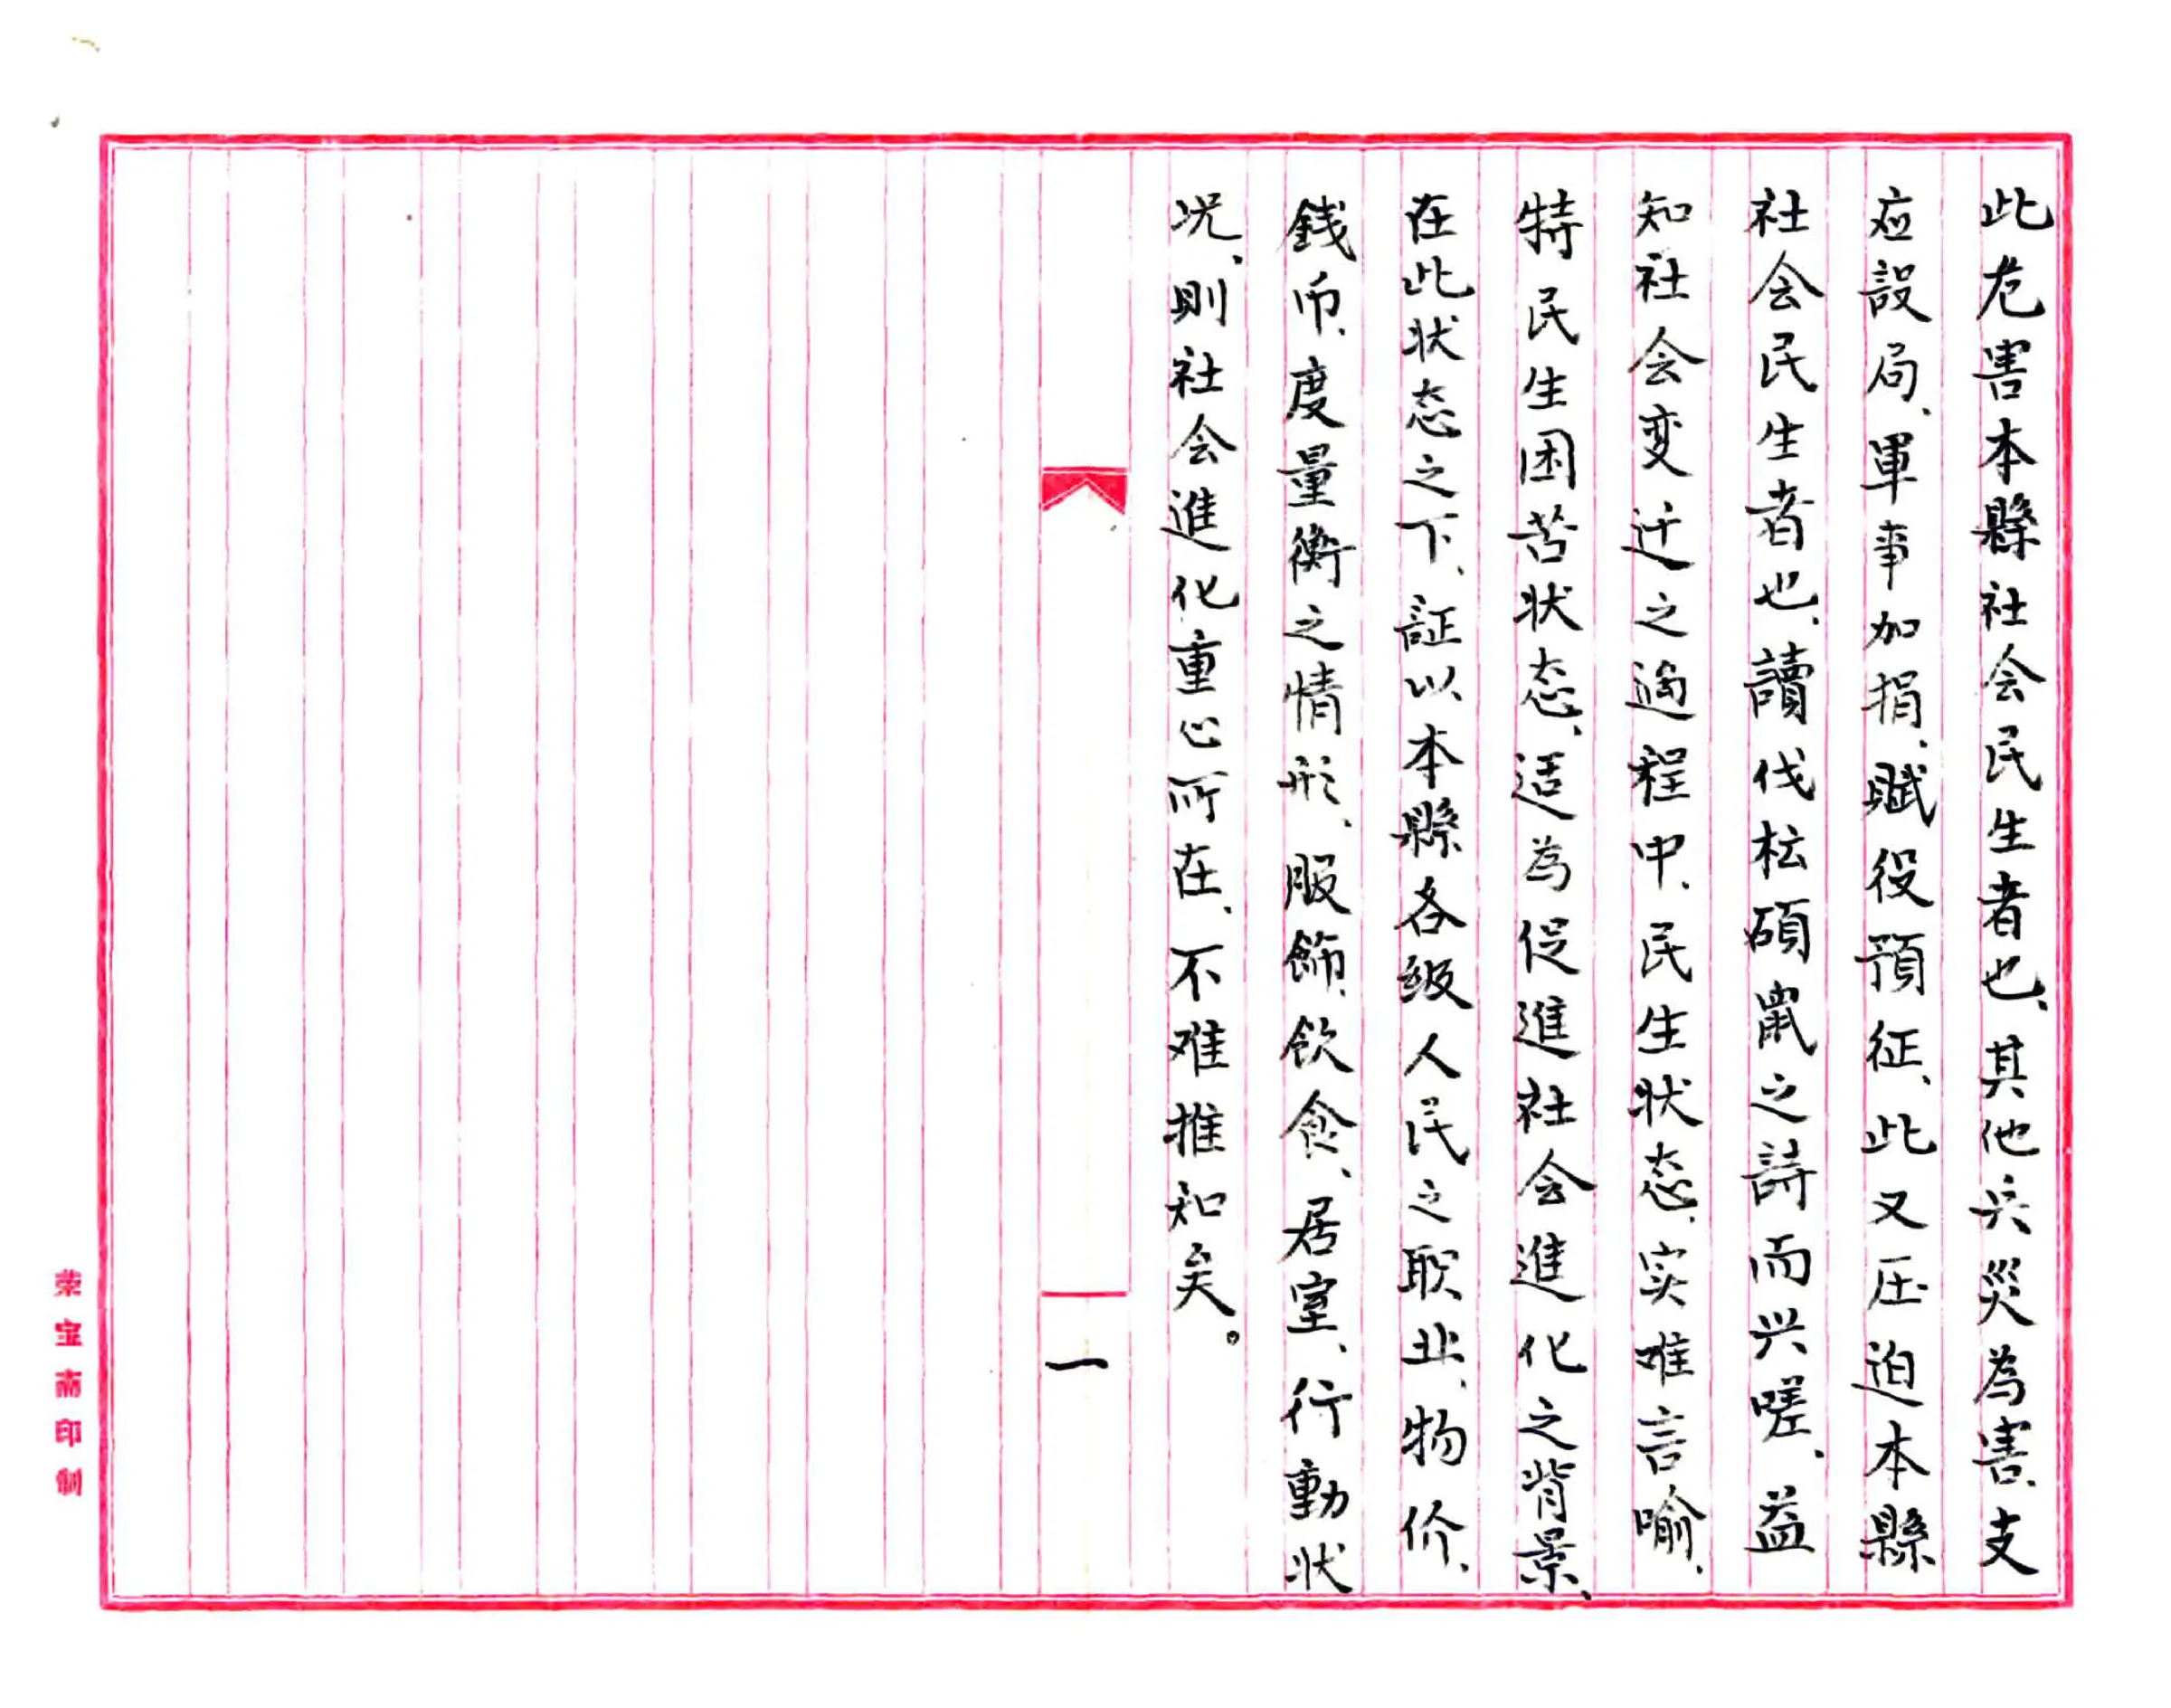 此危害本縣社会民生者也、其他兵災為害、支
应設局、軍事加捐、賦役預征、此又压迫本縣
社会民生者也、讀伐枟碩鼠之詩而兴嗟、益
知社会变迁之過程中、民生状态、实难言喻、
特民生困苦状态、适為促進社会進化之背景、
在此状态之下、証以本縣各级人民之職业、物价、
銭币、度量衡之情形、服飾、飲食、居室、行動状
况、則社会進化重心所在、不难推知矣。
一
荣宝斋印制